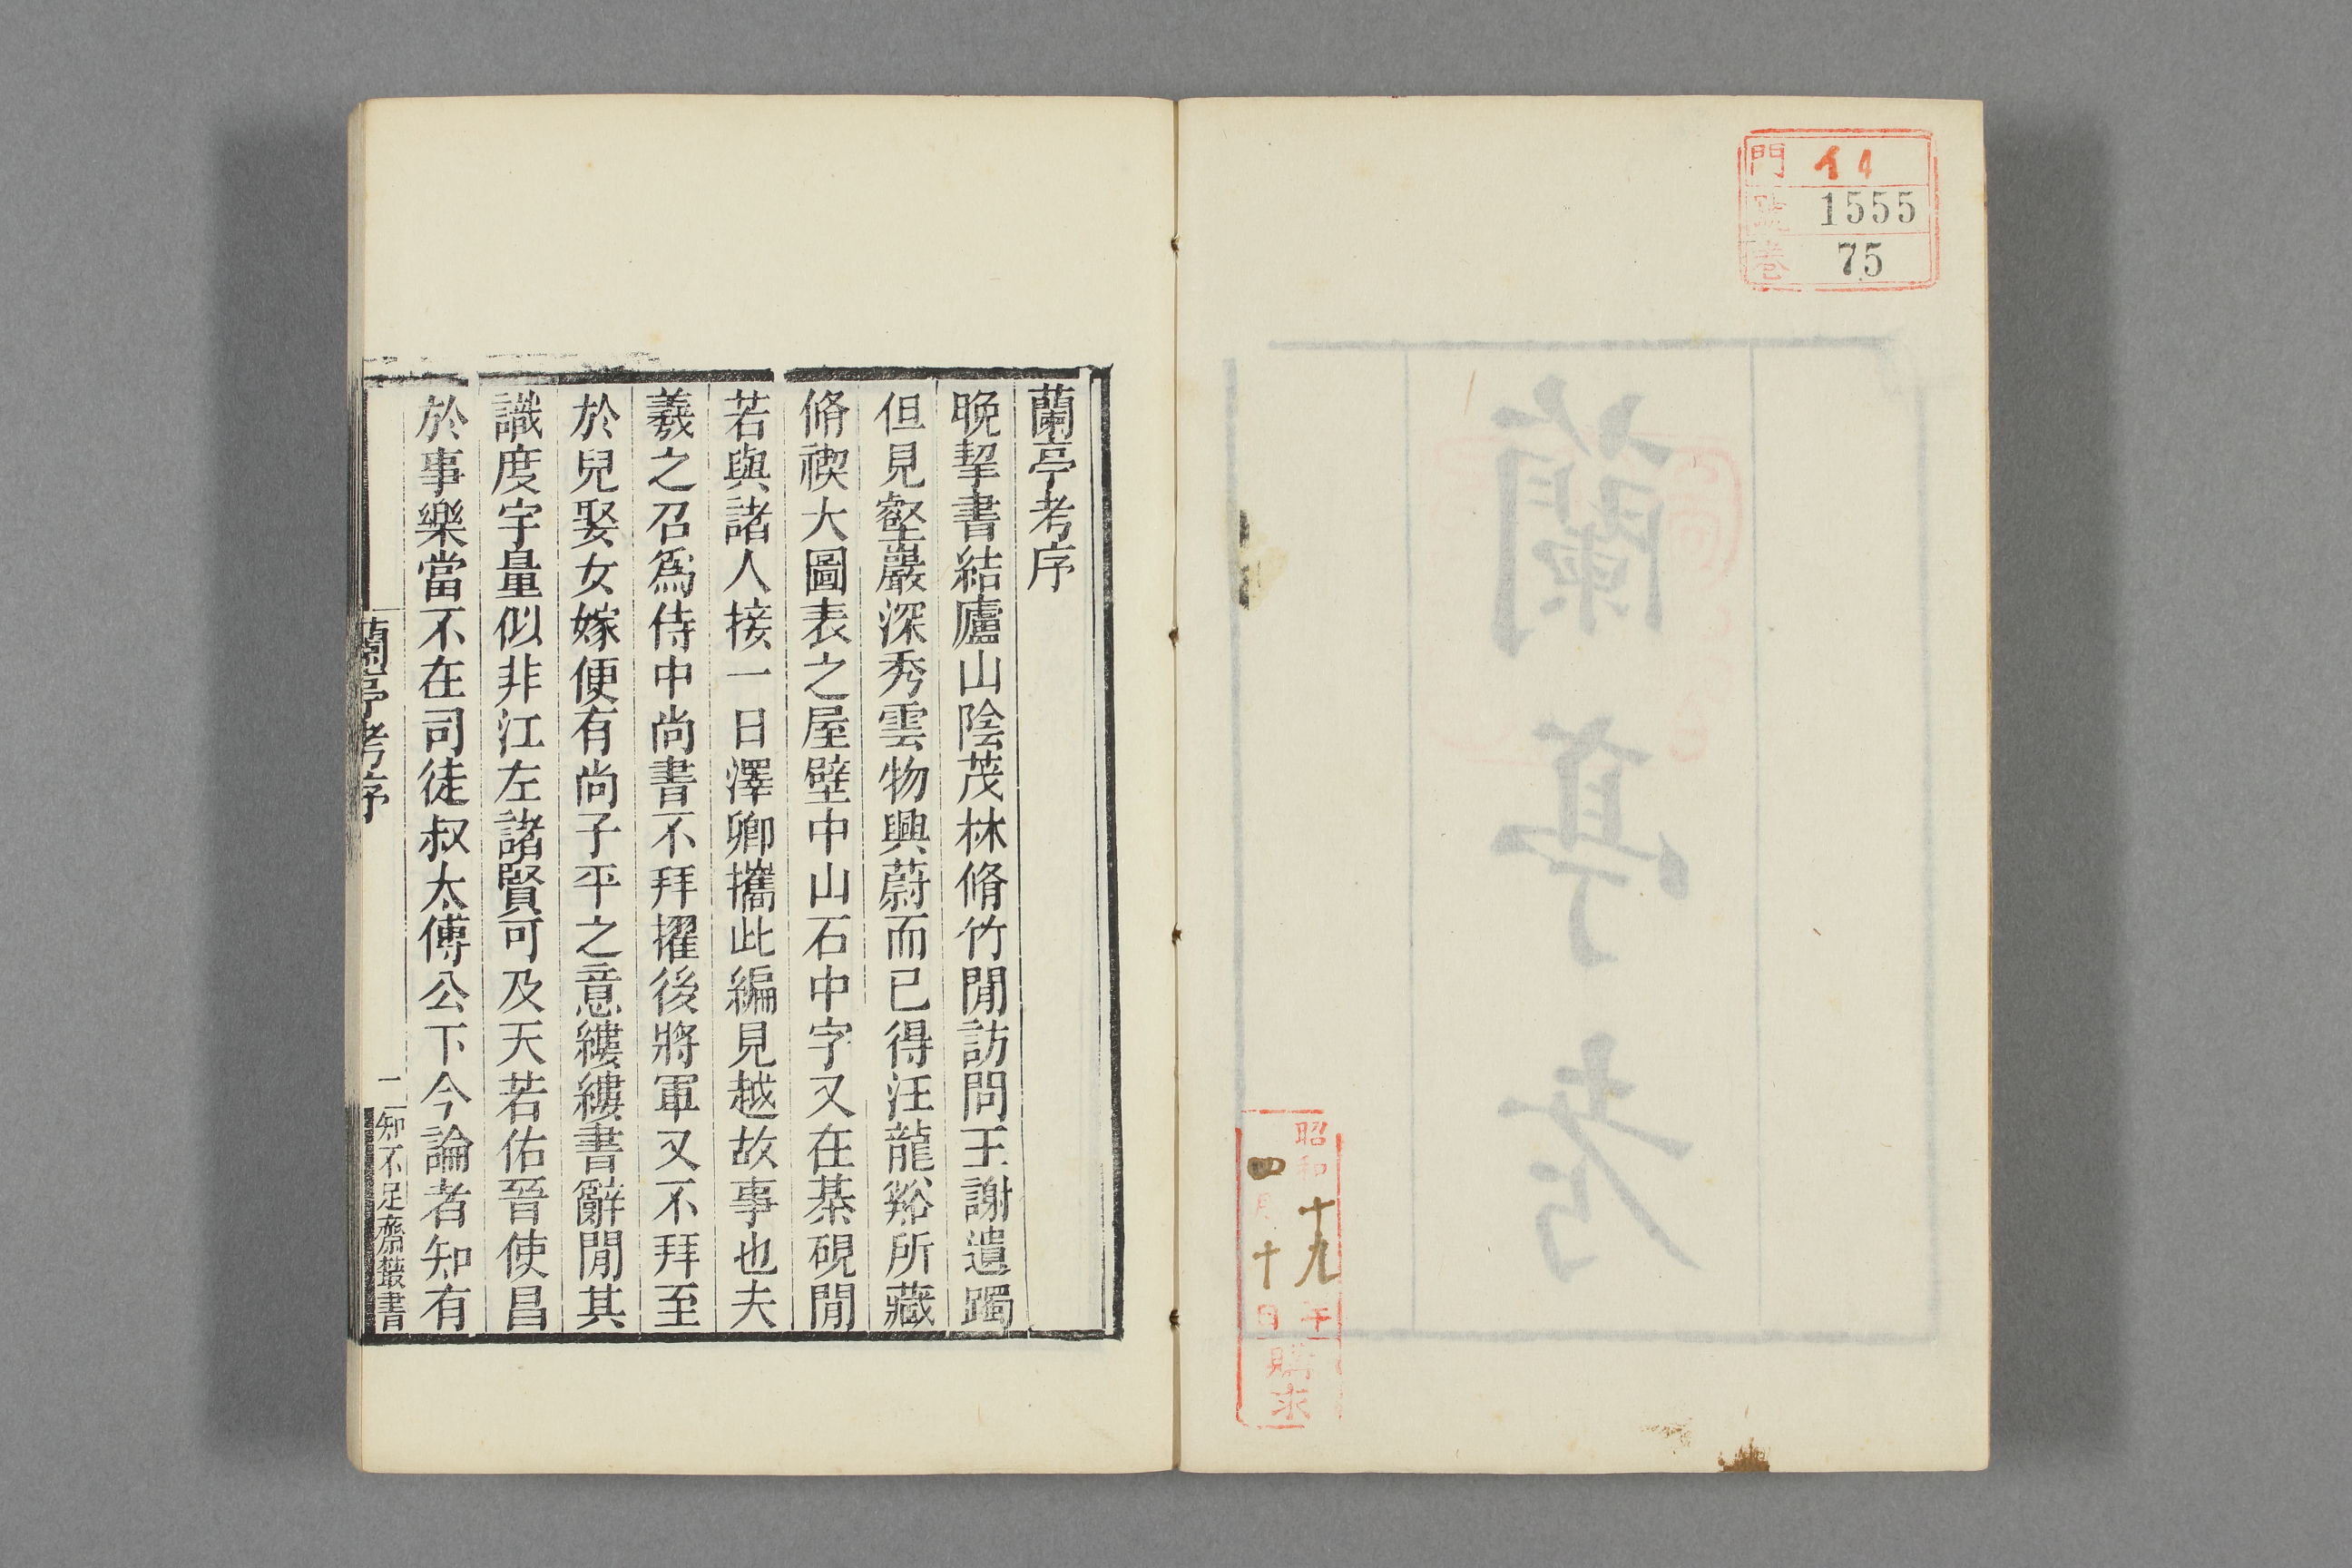 門 イ4
號 1555
卷 75
蘭亭考
昭和十九年
四月十日
購求
蘭亭考序
晚挈書結廬山陰茂林脩竹閒訪問王謝遺躅
但見壑巖深秀雲物興蔚而已得汪龍谿所藏
脩禊大圖表之屋壁中山石中字又在棊硯閒
若與諸人接一日澤卿攜此編見越故事也夫
羲之召爲侍中尚書不拜擢後將軍又不拜至
於兒娶女嫁便有尚子平之意縷縷書辭閒其
識度宇量似非江左諸賢可及天若佑晉使昌
於事樂當不在司徒叔太傅公下今論者知有
蘭亭考序 一 知不足齋叢書